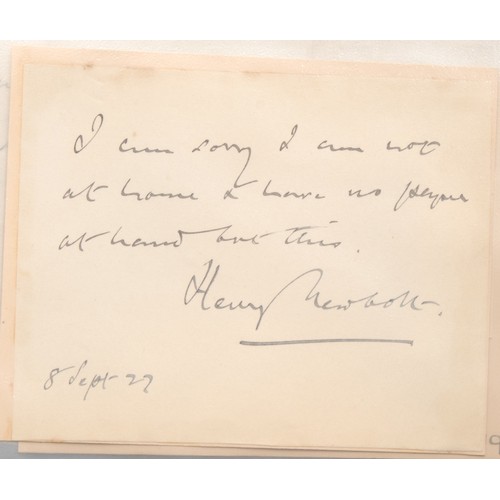 I am sorry I am not
at home & have no paper
at hand but this.
Henry Newbolt.
8 Sept 27